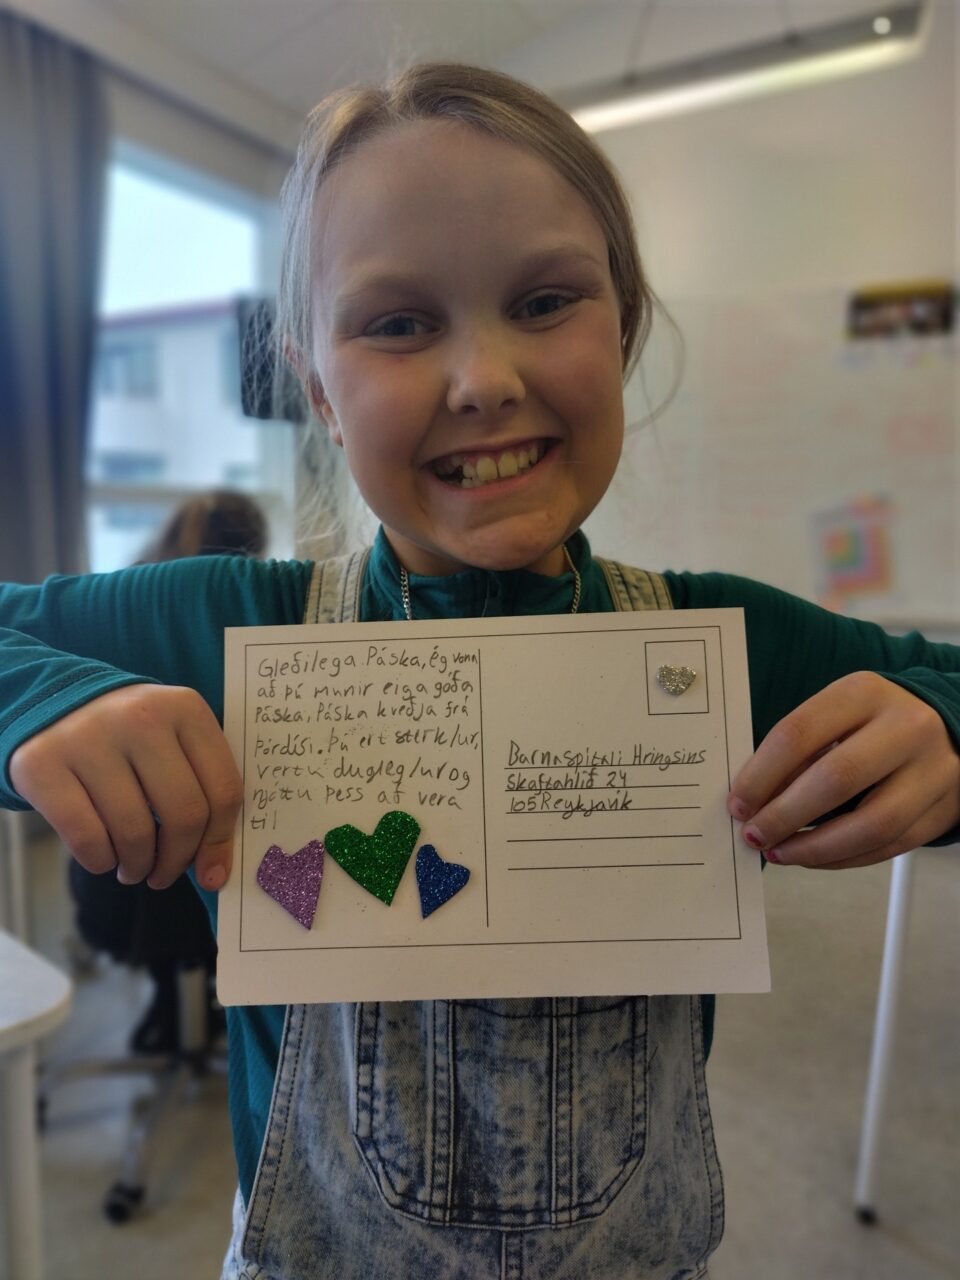 Gleðilega Páska, ég vona
að þú munir eiga góða
Páska, Páska kveðja frá
Þórdísi. Þú ert sterk/ur,
vertu dugleg/ur og
njóttu þess að vera
til
Barnaspítali Hringsins
Skaftahlíð 24
105 Reykjavík